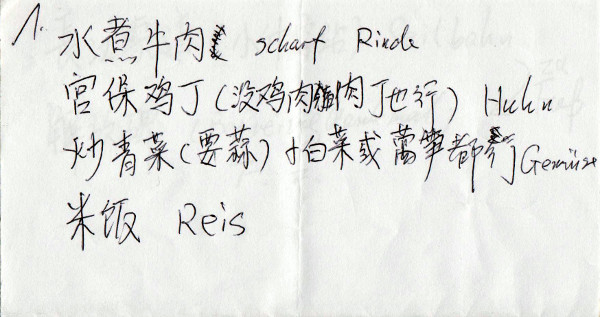 1. 水煮牛肉 scharf Rinde
宫保鸡丁(没鸡肉猪肉丁也行) Huhn
炒青菜(要蒜)小白菜或莴笋都行 Gemüse
米饭 Reis